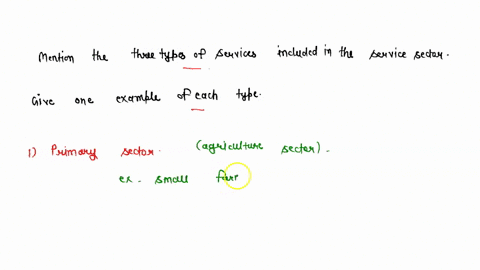 Mention the three types of services included in the service sector.
Give one example of each type.
1) Primary sector. (agriculture sector).
ex. small farr